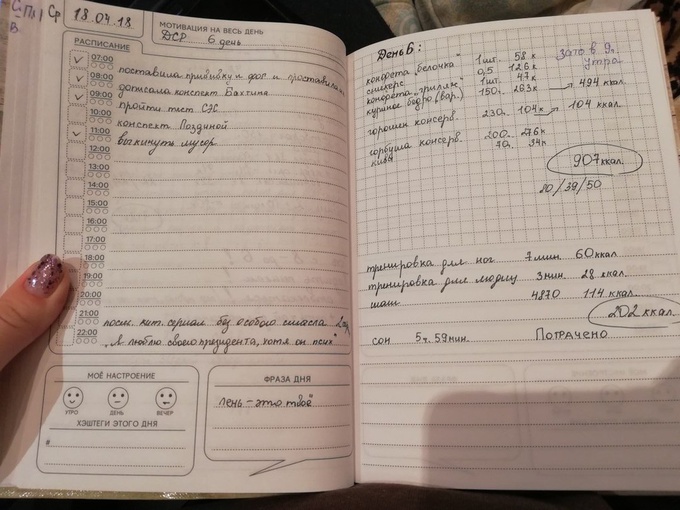 С
Пн
В
Ср
18.04.18
МОТИВАЦИЯ НА ВЕСЬ ДЕНЬ
ДСР 6 день
РАСПИСАНИЕ
07:00
поставила прививку и
08:00
дописала конспект Бахтина
09:00
пройти тест СЖ
10:00
конспект Поздиной
11:00
выкинуть мусор
12:00
13:00
14:00
15:00
16:00
17:00
18:00
19:00
20:00
21:00
посм. кит. сериал без особого смысла
22:00
"Я люблю своего президента, хотя он псих"
МОЁ НАСТРОЕНИЕ
УТРО ДЕНЬ ВЕЧЕР
ХЭШТЕГИ ЭТОГО ДНЯ
#
ФРАЗА ДНЯ
лень – это твоё
День 6:
конфета "белочка" 1 шт. 58 к
сникерс 0,5 126 к
конфета "грильяж" 1 шт. 47 к
куриное бедро (вар.) 150г. 263к → 494 ккал.
горошек консерв. 230г. 104к → 104 ккал.
горбуша консерв. 200г. 276к
киви 70г. 34к
907 ккал.
80/39/50
Зато в 9ч.
утра
тренировка для ног 7 мин. 60 ккал
тренировка для 3 мин. 28 ккал.
шаги 4870 114 ккал.
202 ккал.
сон 5ч. 59мин. ПОТРАЧЕНО